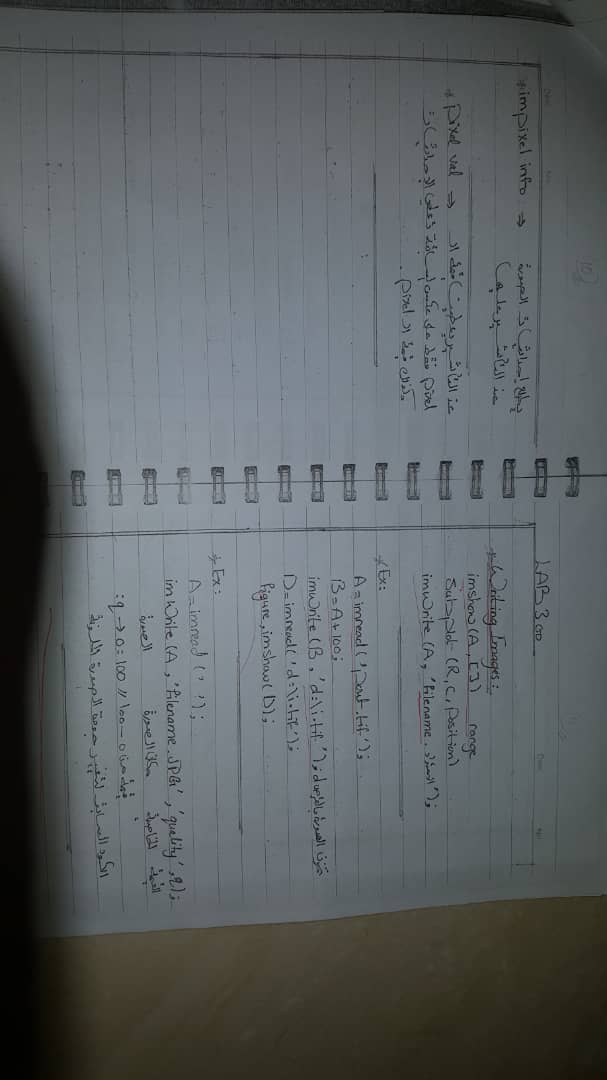 * impixel info ⇒ يطلع إحداثيات الصورة
عند التأشير عليها
* pixel val ⇒ عند التأشير يعطينا قيمة الـ
pixel فقط على عكس السابقة تعطي الإحداثيات
وكذلك قيمة الـ pixel.
LAB300
* Writing Images:
imshow (A, []) range
Subplot (R, C, Position)
imwrite (A, 'filename. امتداد');
* Ex:
A = imread ('pout.tif');
B = A + 100;
imwrite (B, 'd:\i.tif'); تخزن الصورة بالقرص d
D = imread ('d:\i.tif');
figure, imshow (D);
* Ex:
A = imread (' ');
imwrite (A, 'filename.JPG', 'quality', q);
الصورة مكان الصورة الخاصية القيمة
:q → 0 = 100 // قيمة من 0 - 100
الكود السابق لتغيير جودة الصورة الملونة